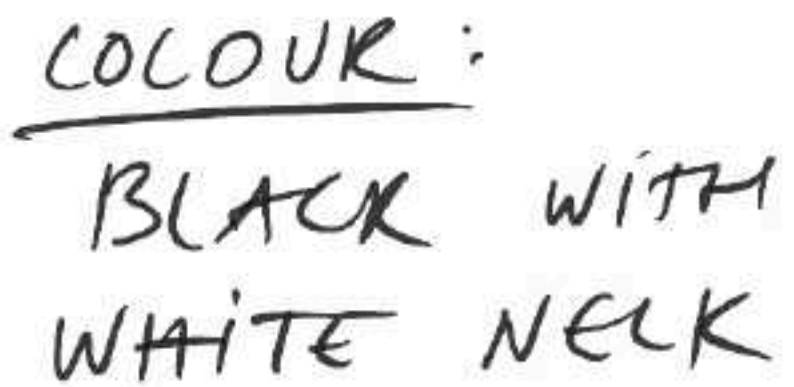 COLOUR:
BLACK WiTH
WHiTE NECK